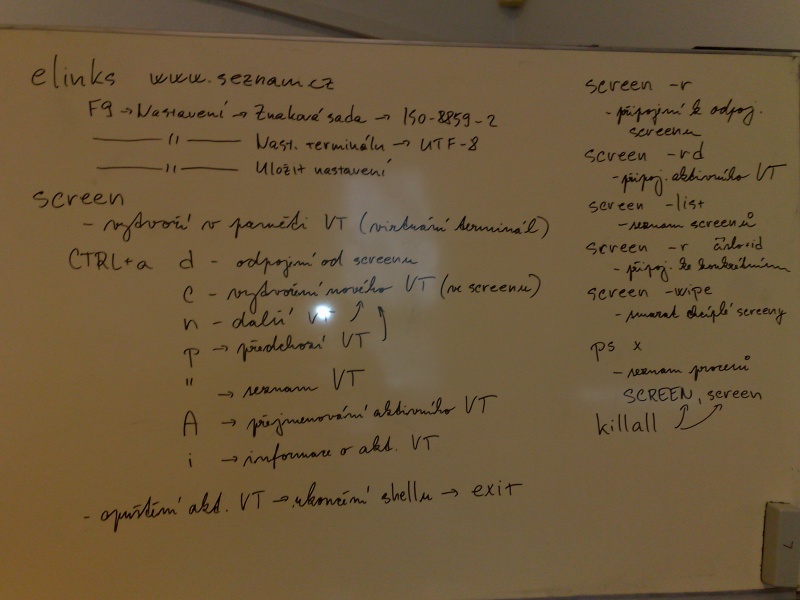 elinks www.seznam.cz
F9 → Nastavení → Znaková sada → ISO-8859-2
—— " —— Nast. terminálu → UTF-8
—— " —— Uložit nastavení
screen
- vytvoří v paměti VT (virtuální terminál)
CTRL+a d - odpojení od screenu
c - vytvoření nového VT (ve screenu)
n - další VT
p → předchozí VT
" → seznam VT
A → přejmenování aktivního VT
i → informace o akt. VT
- opuštění akt. VT → ukončení shellu → exit
screen -r
- připojení k odpoj.
screenu
screen -rd
- připoj. aktivního VT
screen -list
- seznam screenů
screen -r číslo+id
- připoj. ke konkrétnímu
screen -wipe
- smazat chciplé screeny
ps x
- seznam procesů
SCREEN, screen
killall